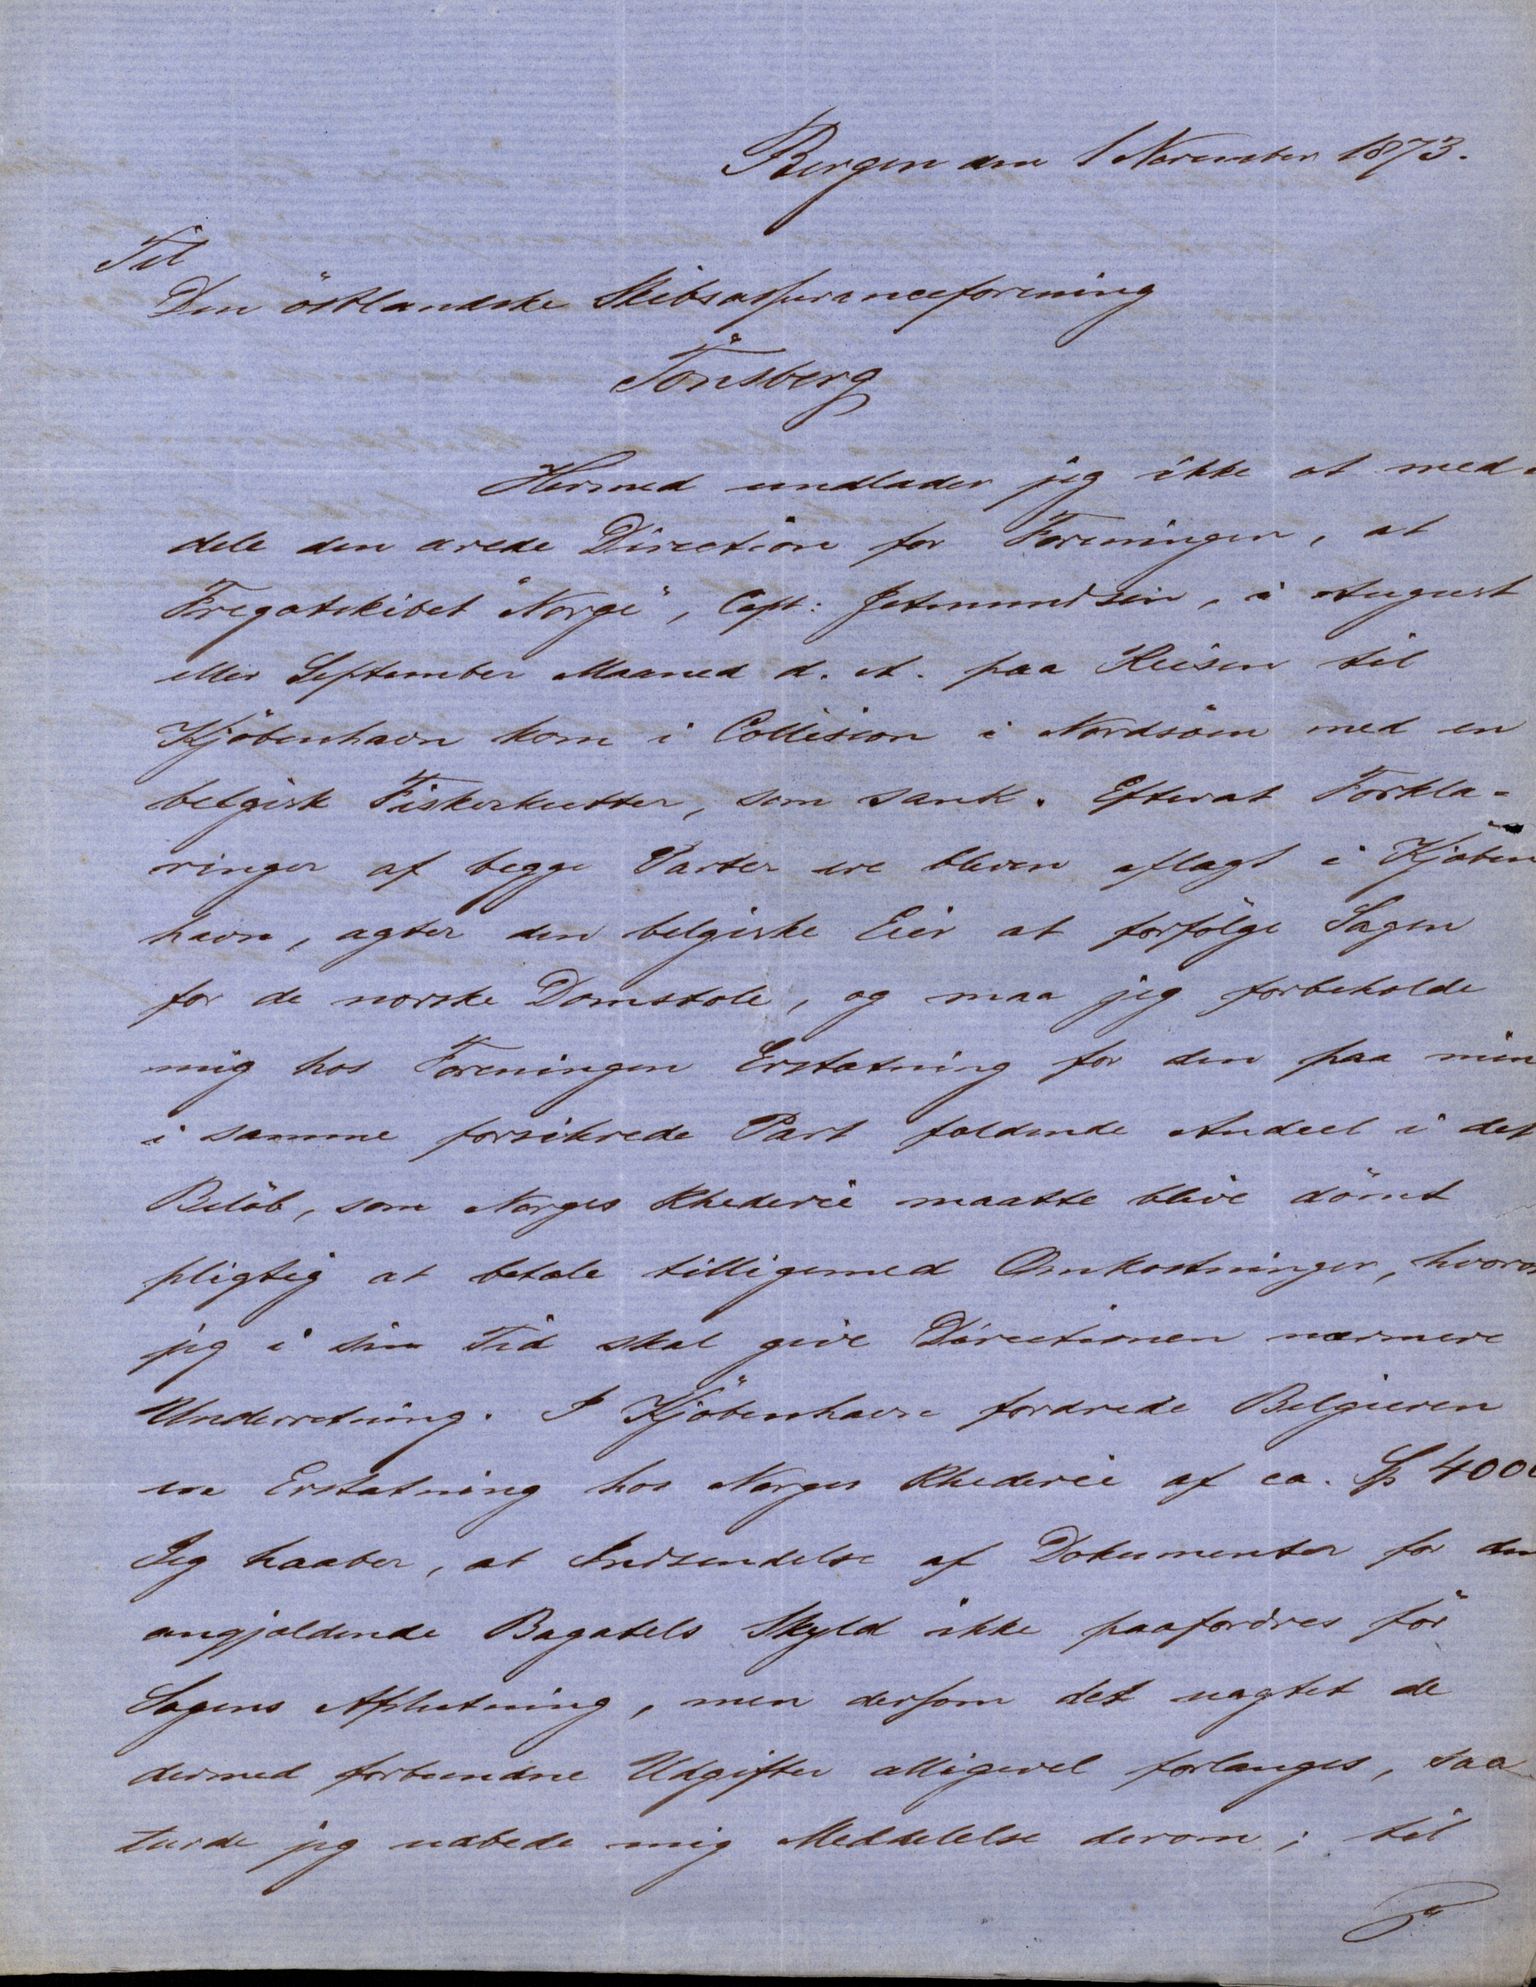 Bergen den 1 November 1873.
Til
Den östlandske Skibsassuranceforening
Tönsberg
Hermed undlader jeg ikke at med-
dele den ærede Direction for Foreningen, at
Fregatskibet "Norge", Capt: Jetmundsen, i August
eller September Maaned d. A. paa Reisen til
Kjöbenhavn kom i Collision i Nordsöen med en
belgisk Fiskerkutter, som sank. Efterat Forkla-
ringer af begge Parter ere bleven aflagt i Kjöben
havn, agter den belgiske Eier at forfölge Sagen
for de norske Domstole, og maa jeg forbeholde
mig hos Foreningen Erstatning for den paa min
i samme forsikrede Part faldende Andeel i det
Belöb, som Norges Rhederie maatte blive dömt
pligtig at betale tilligemed Omkostninger, hvorom
jeg i sin Tid skal give Directionen nærmere
Underretning. I Kjöbenhavn fordrede Belgieren
en Erstatning hos Norges Rhederie af ca. Sp 4000
Jeg haaber, at Indsendelse af Dokumenter for den
angjældende Bagatels Skyld ikke paafordres för
Sagens Afslutning, men dersom det uagtet de
dermed forbundne Udgifter alligevel forlanges, saa
turde jeg udbede mig Meddelelse derom; til